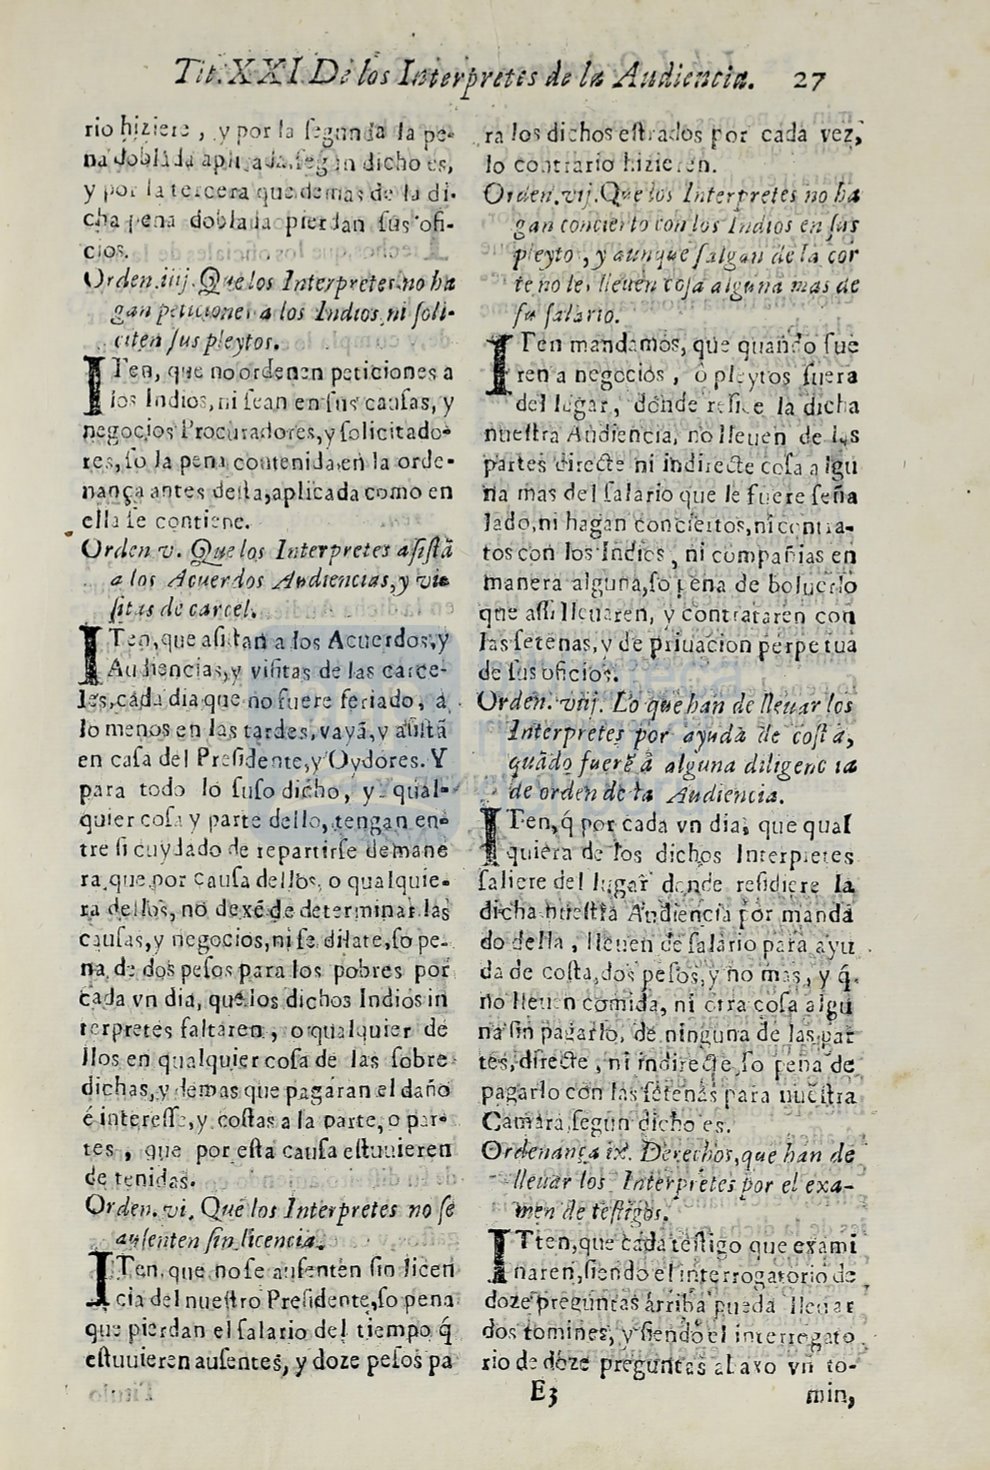 Tit. XXI. De los Interpretes de la Audiencia. 27
rio hiziere, y por la segunda la pe-
na doblada aplicada, segun dicho es,
y por la tercera que demas de la di-
cha pena doblada pierdan sus ofi-
cios.
Orden. iiij. Que los Interpretes no ha
gan peticiones a los Indios, ni soli-
citen sus pleytos.
ITen, que no ordenen peticiones a
los Indios, ni sean en sus causas, y
negocios Procuradores, y solicitado-
res, so la pena contenida, en la orde-
nança antes desta, aplicada como en
ella se contiene.
Orden v. Que los Interpretes asistā
a los Acuerdos Audiencias, y vi-
sitas de carcel.
ITen, que asistan a los Acuerdos, y
Audiencias, y visitas de las carce-
les, cada dia que no fuere feriado, a
lo menos en las tardes, vayā, y asistā
en casa del Presidente, y Oydores. Y
para todo lo suso dicho, y qual-
quier cosa y parte dello, tengan en-
tre si cuydado de repartirse demane
ra, que por causa dellos, o qualquie-
ra dellos, no dexē de determinar las
causas, y negocios, ni se dilate, so pe-
na, de dos pesos para los pobres por
cada vn dia, que los dichos Indios in
terpretes faltaren, o qualquier de
llos en qualquier cosa de las sobre
dichas, y demas que pagaran el daño
é interesse, y costas a la parte, o par-
tes, que por esta causa estuuieren
de tenidas.
Orden. vi. Que los Interpretes no se
ausenten sin licencia.
ITen, que no se ausenten sin licen
cia del nuestro Presidente, so pena
que pierdan el salario del tiempo q̄
estuuieren ausentes, y doze pesos pa
ra los dichos estrados por cada vez,
lo contrario hizieren.
Orden. vij. Que los Interpretes no ha
gan concierto con los Indios en sus
pleytos, y aunque salgan de la cor
te no les lleuen cosa alguna mas de
su salario.
ITen mandamos, que quando fue
ren a negocios, ò pleytos fuera
del lugar, donde reside la dicha
nuestra Audiencia, no lleuen de las
partes directe ni indirecte cosa algu
na mas del salario que le fuere seña
lado, ni hagan conciertos, ni contra-
tos con los Indios, ni compañias en
manera alguna, so pena de boluerlo
que assi lleuaren, y contrataren con
las setenas, y de priuacion perpetua
de sus oficios.
Orden. viij. Lo que han de lleuar los
Interpretes por ayuda de costa,
quādo fuerē a alguna diligencia
de orden de la Audiencia.
ITen, q̄ por cada vn dia, que qual
quiera de los dichos Interpretes
saliere del lugar donde residiere la
dicha nuestra Audiencia por manda
do della, lleuen de salario para ayu
da de costa, dos pesos, y no mas, y q̄
no lleuen comida, ni otra cosa algu
na sin pagarlo, de ninguna de las par
tes, directe, ni indirecte, so pena de
pagarlo con las setenas para nuestra
Camara, segun dicho es.
Ordenança ix. Derechos, que han de
lleuar los Interpretes por el exa-
men de testigos.
ITten, que cada testigo que exami
naren, siendo el interrogatorio de
doze preguntas arriba pueda lleuar
dos tomines, y siendo el interrogato
rio de doze preguntas abaxo vn to-
E3 min,